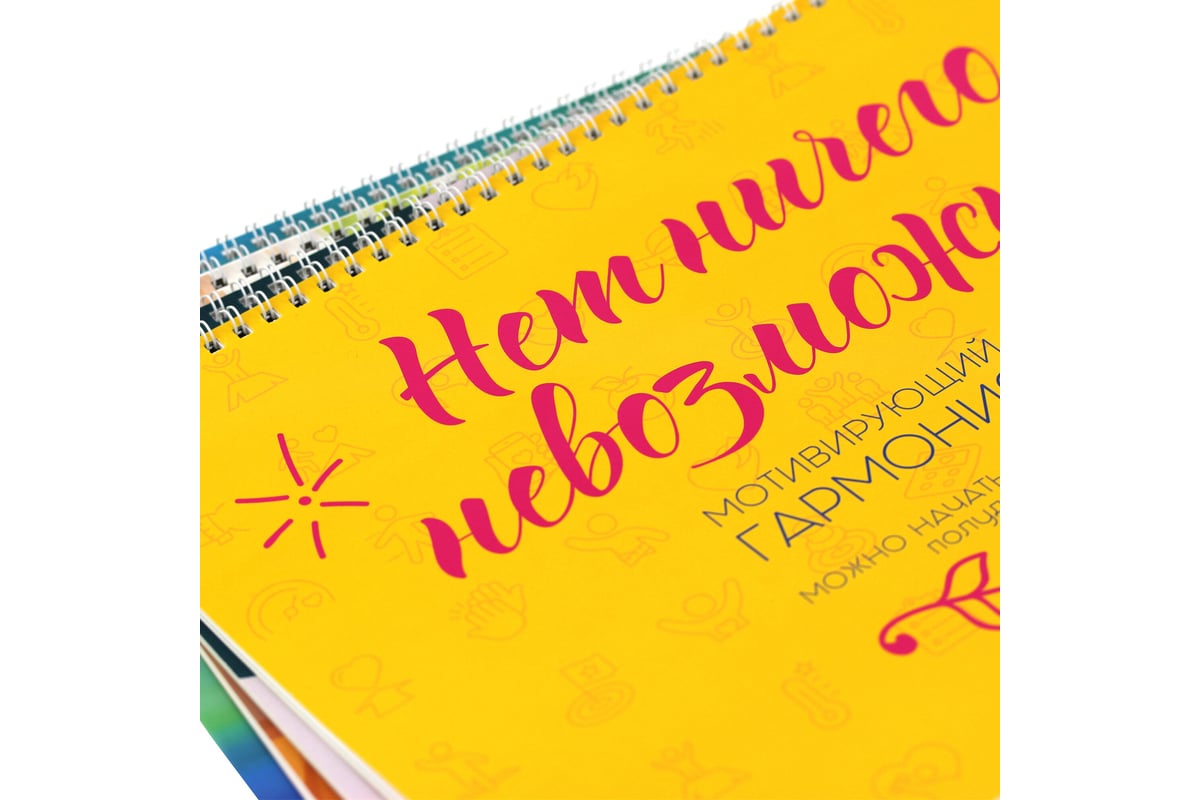 Нет ничего
невозможн
МОТИВИРУЮЩИЙ
ГАРМОНИЯ
МОЖНО НАЧАТЬ
ПОЛУД